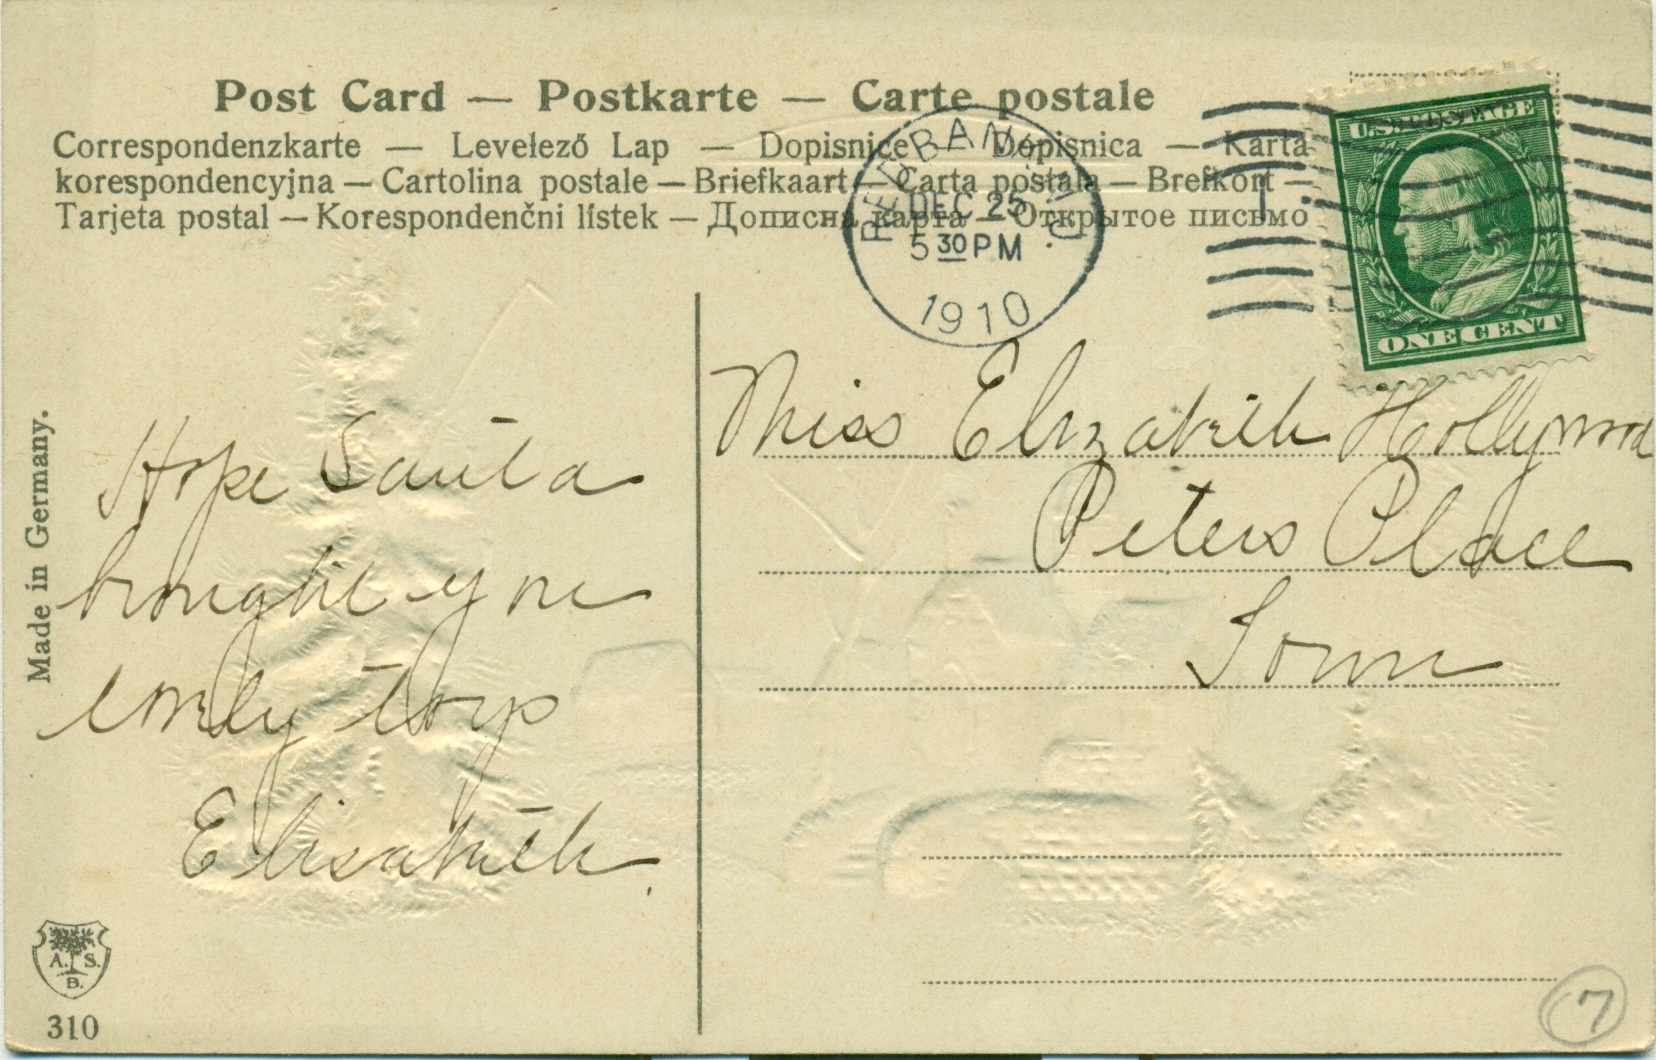 Post Card — Postkarte — Carte postale
Correspondenzkarte — Levelező Lap — Dopisnice — Dopisnica — Karta
korespondencyjna — Cartolina postale — Briefkaart — Carta postala — Brefkort —
Tarjeta postal — Korespondenčni lístek — Дописна карта — Открытое письмо
RED BANK, N.J.
DEC 25
5 30 PM
1910
1
U.S. POSTAGE
ONE CENT
Miss Elizabeth Hollywood
Peters Place
Town
Hope Santa
brought you
lovely toys
Elisabeth.
Made in Germany.
A. S.
B.
310
7